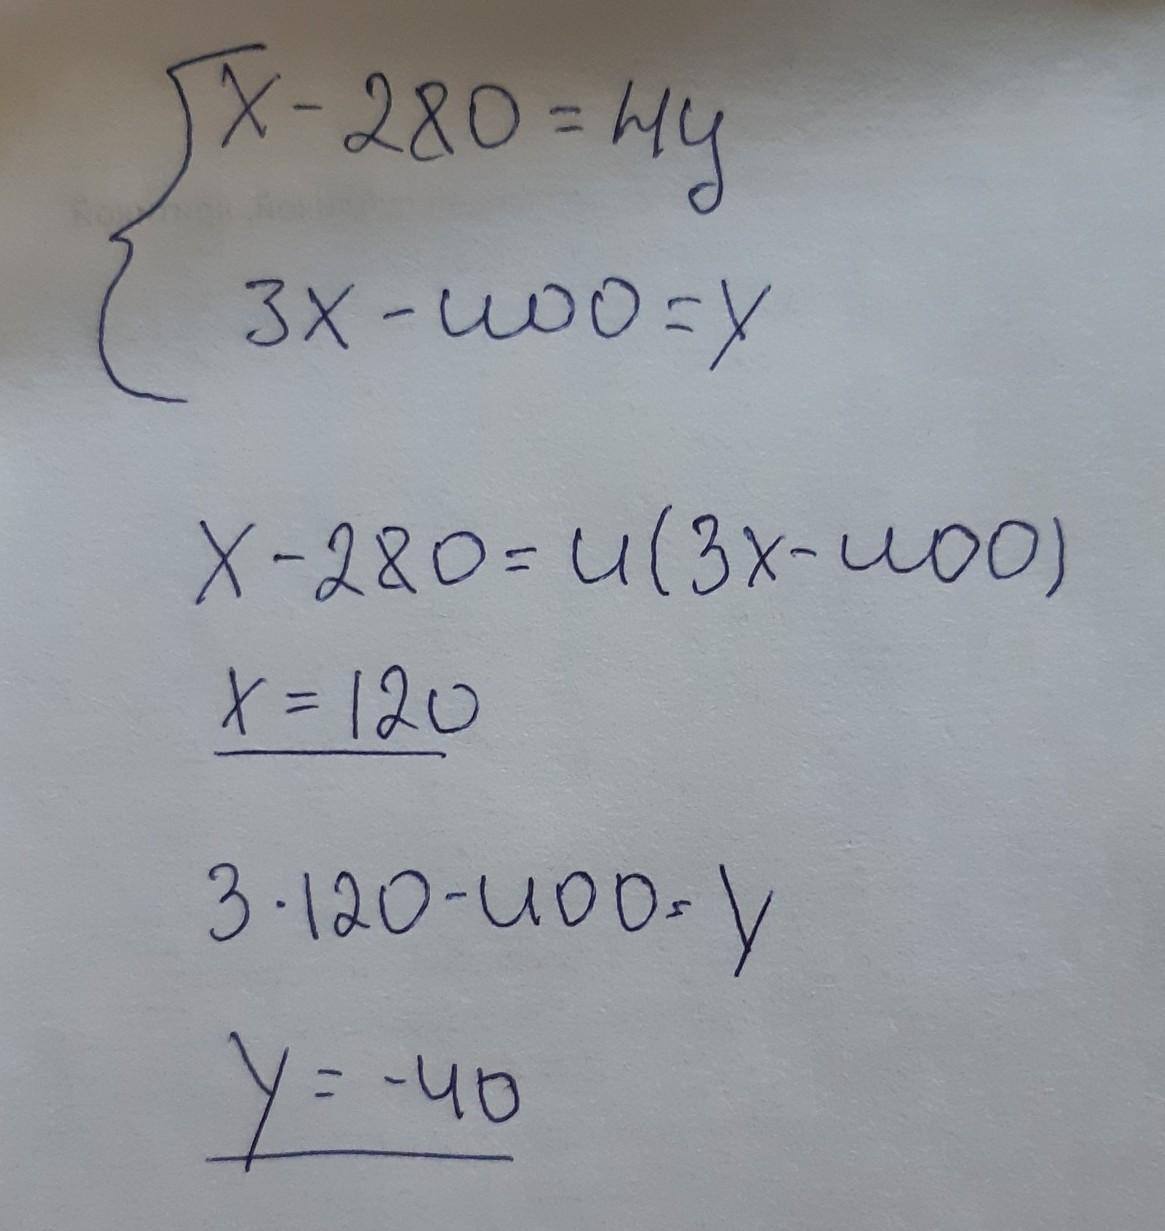 x - 280 = 4y
3x - 400 = y
x - 280 = 4(3x - 400)
x = 120
3 · 120 - 400 = y
y = -40